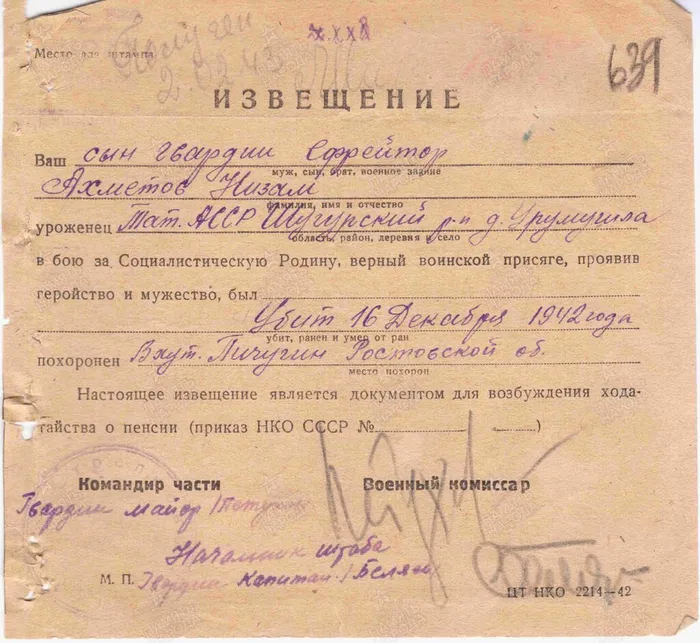 хххв
Место для штампа
Получен
2.02.43
639
ИЗВЕЩЕНИЕ
Ваш сын гвардии Ефрейтор
муж, сын, брат, военное звание
Ахметов Низам
фамилия, имя и отчество
уроженец Тат. АССР Шугурский р-н д. Урумугила
область, район, деревня и село
в бою за Социалистическую Родину, верный воинской присяге, проявив
геройство и мужество, был
Убит 16 Декабря 1942 года
убит, ранен и умер от ран
похоронен Вхут. Пичугин Ростовской об.
место похорон
Настоящее извещение является документом для возбуждения хода-
тайства о пенсии (приказ НКО СССР № - )
Командир части Военный комиссар
Гвардии майор
Начальник штаба
М. П. Гвардии Капитан /Беляе
ЦТ НКО 2214—42